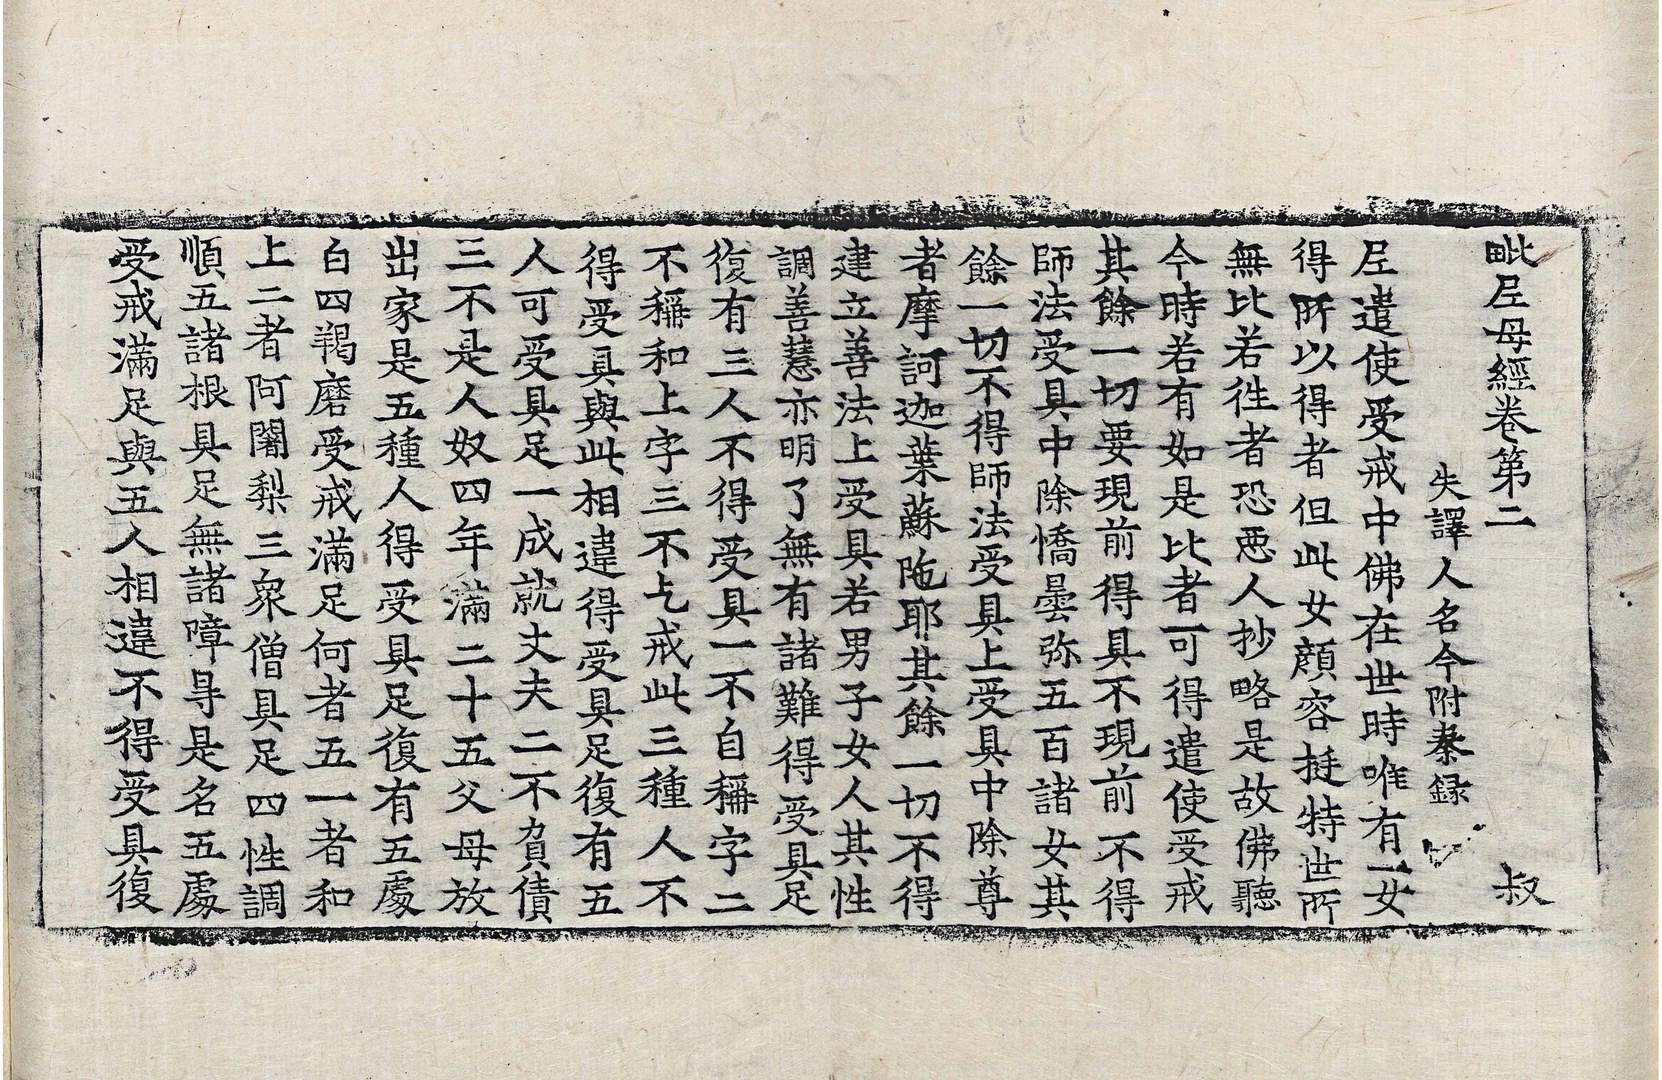 毗尼母經卷第二 叔
失譯人名今附秦録
尼遣使受戒中佛在世時唯有一女
得所以得者但此女顔容挺特世所
無比若徃者恐惡人抄略是故佛聽
今時若有如是比者可得遣使受戒
其餘一切要現前得具不現前不得
師法受具中除憍曇弥五百諸女其
餘一切不得師法受具上受具中除尊
者摩訶迦葉蘇陁耶其餘一切不得
建立善法上受具若男子女人其性
調善慧亦明了無有諸難得受具足
復有三人不得受具一不自稱字二
不稱和上字三不乞戒此三種人不
得受具與此相違得受具足復有五
人可受具足一成就丈夫二不負債
三不是人奴四年滿二十五父母放
出家是五種人得受具足復有五處
白四羯磨受戒滿足何者五一者和
上二者阿闍梨三衆僧具足四性調
順五諸根具足無諸障㝵是名五處
受戒滿足與五人相違不得受具復